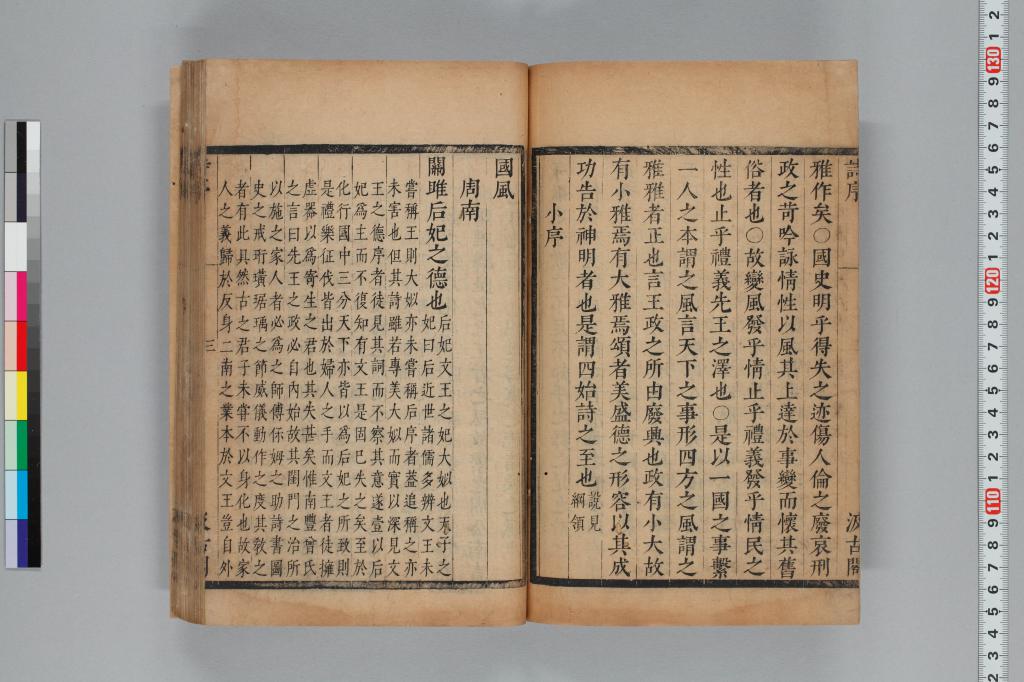 詩序
汲古閣
雅作矣○國史明乎得失之迹傷人倫之廢哀刑
政之苛吟詠情性以風其上達於事變而懷其舊
俗者也○故變風發乎情止乎禮義發乎情民之
性也止乎禮義先王之澤也○是以一國之事繫
一人之本謂之風言天下之事形四方之風謂之
雅雅者正也言王政之所由廢興也政有小大故
有小雅焉有大雅焉頌者美盛德之形容以其成
功告於神明者也是謂四始詩之至也說見
綱領
小序
國風
周南
關雎后妃之德也后妃文王之妃大姒也天子之
妃曰后近世諸儒多辨文王未
嘗稱王則大姒亦未嘗稱后序者蓋追稱之亦
未害也但其詩雖若專美大姒而實以深見文
王之德序者徒見其詞而不察其意遂壹以后
妃爲主而不復知有文王是固已失之矣至於
化行國中三分天下亦皆以爲后妃之所致則
是禮樂征伐皆出於婦人之手而文王者徒擁
虛器以爲寄生之君也其失甚矣惟南豐曾氏
之言曰先王之政必自內始故其閨門之治所
以施之家人者必爲之師傅保姆之助詩書圖
史之戒珩璜琚瑀之節威儀動作之度其敎之
者有此具然古之君子未嘗不以身化也故家
人之義歸於反身二南之業本於文王豈自外
三